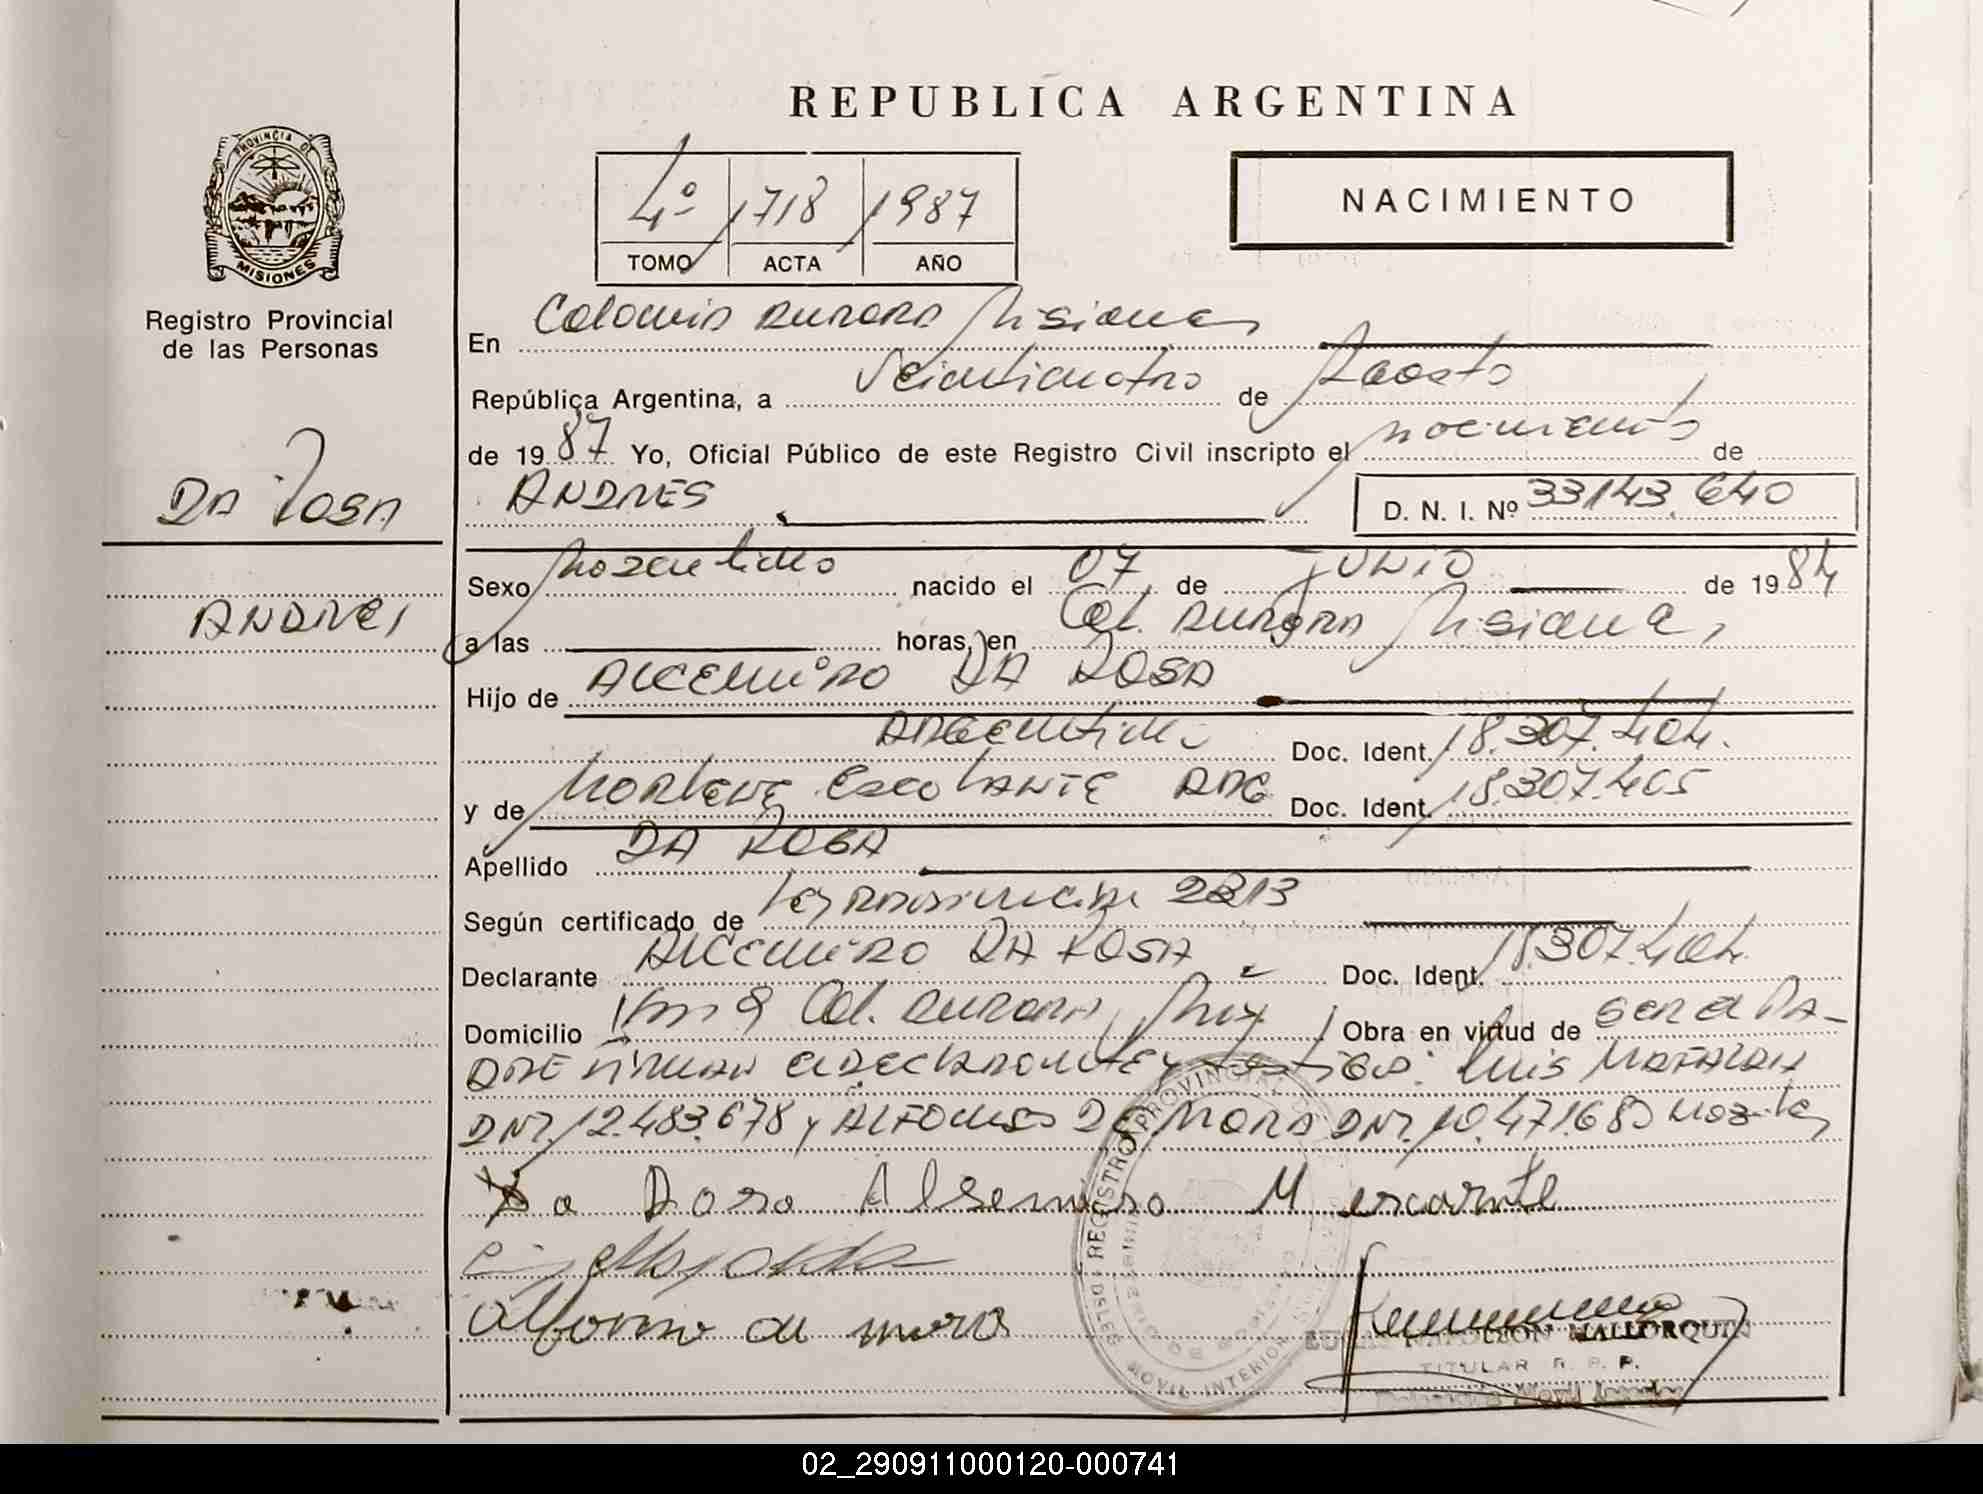 REPUBLICA ARGENTINA
PROVINCIA DE
MISIONES
Registro Provincial
de las Personas
4º 1718 1987
TOMO ACTA AÑO
NACIMIENTO
DA ROSA
ANDRES
En Colonia Aurora Misiones
República Argentina, a Veinticuatro de Agosto
de 1987 Yo, Oficial Público de este Registro Civil inscripto el nacimiento de
ANDRES D. N. I. Nº 33143.640
Sexo Masculino nacido el 07 de JUNIO de 1984
a las horas, en Col. Aurora Misiones
Hijo de DA ROSA
Argentino Doc. Ident. 18.307.404.
y de Doc. Ident. 18.307.405
Apellido DA ROSA
Según certificado de 2213
Declarante DA ROSA Doc. Ident. 18.307.404.
Domicilio Km 9 Col. Aurora, Mnes Obra en virtud de ser el PA-
DRE FIRMAN el declarante y testigos: Luis
DNI. 12.483.678 y ALFONSO DE MORA DNI.
Da Rosa
Alfonso de mora
REGISTRO PROVINCIAL DE
MOVIL INTERIOR
NAPOLEON MALLORQUIN
TITULAR R. P. P.
02_290911000120-000741